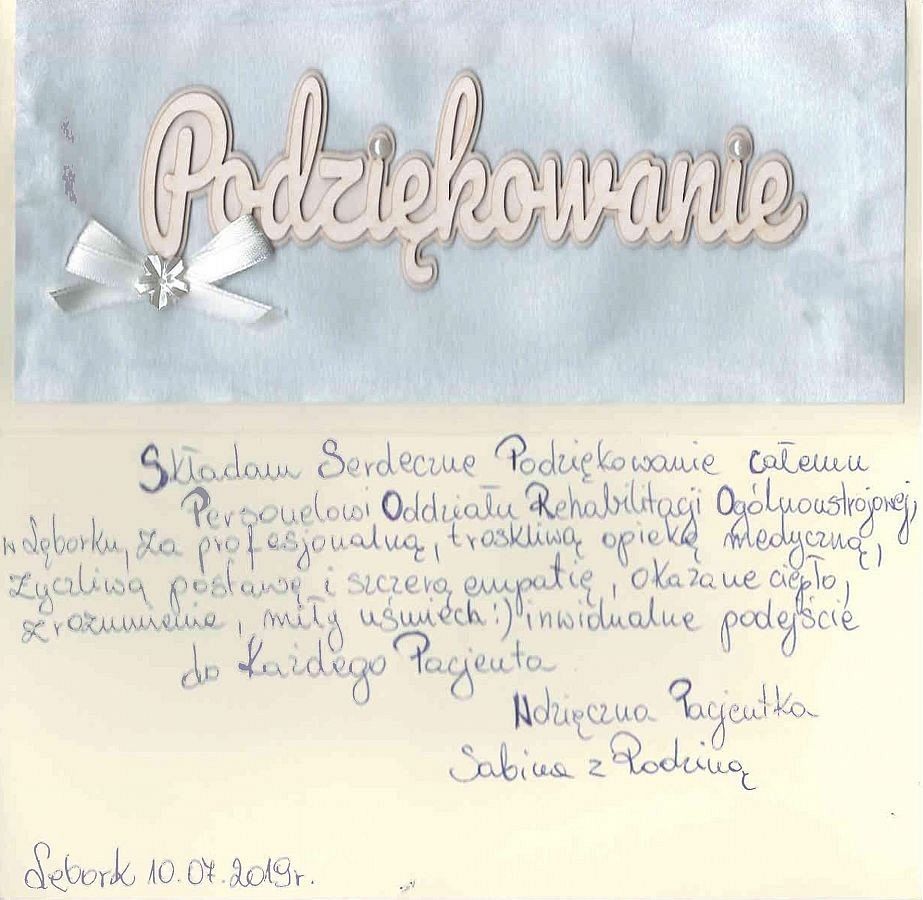 Podziękowanie
Składam Serdeczne Podziękowanie całemu
Personelowi Oddziału Rehabilitagi Ogólnoustrojowej
w Lęborku, za profesjonalną, troskliwą opiekę medyczną,
życzliwą postawę i szczerą empatię, okazane ciepło,
zrozumienie, miły uśmiech :) inwidualne podejście
do Każdego Pacjenta
Wdzięczna Pacjentka
Sabina z Rodziną
Lębork 10.07.2019r.